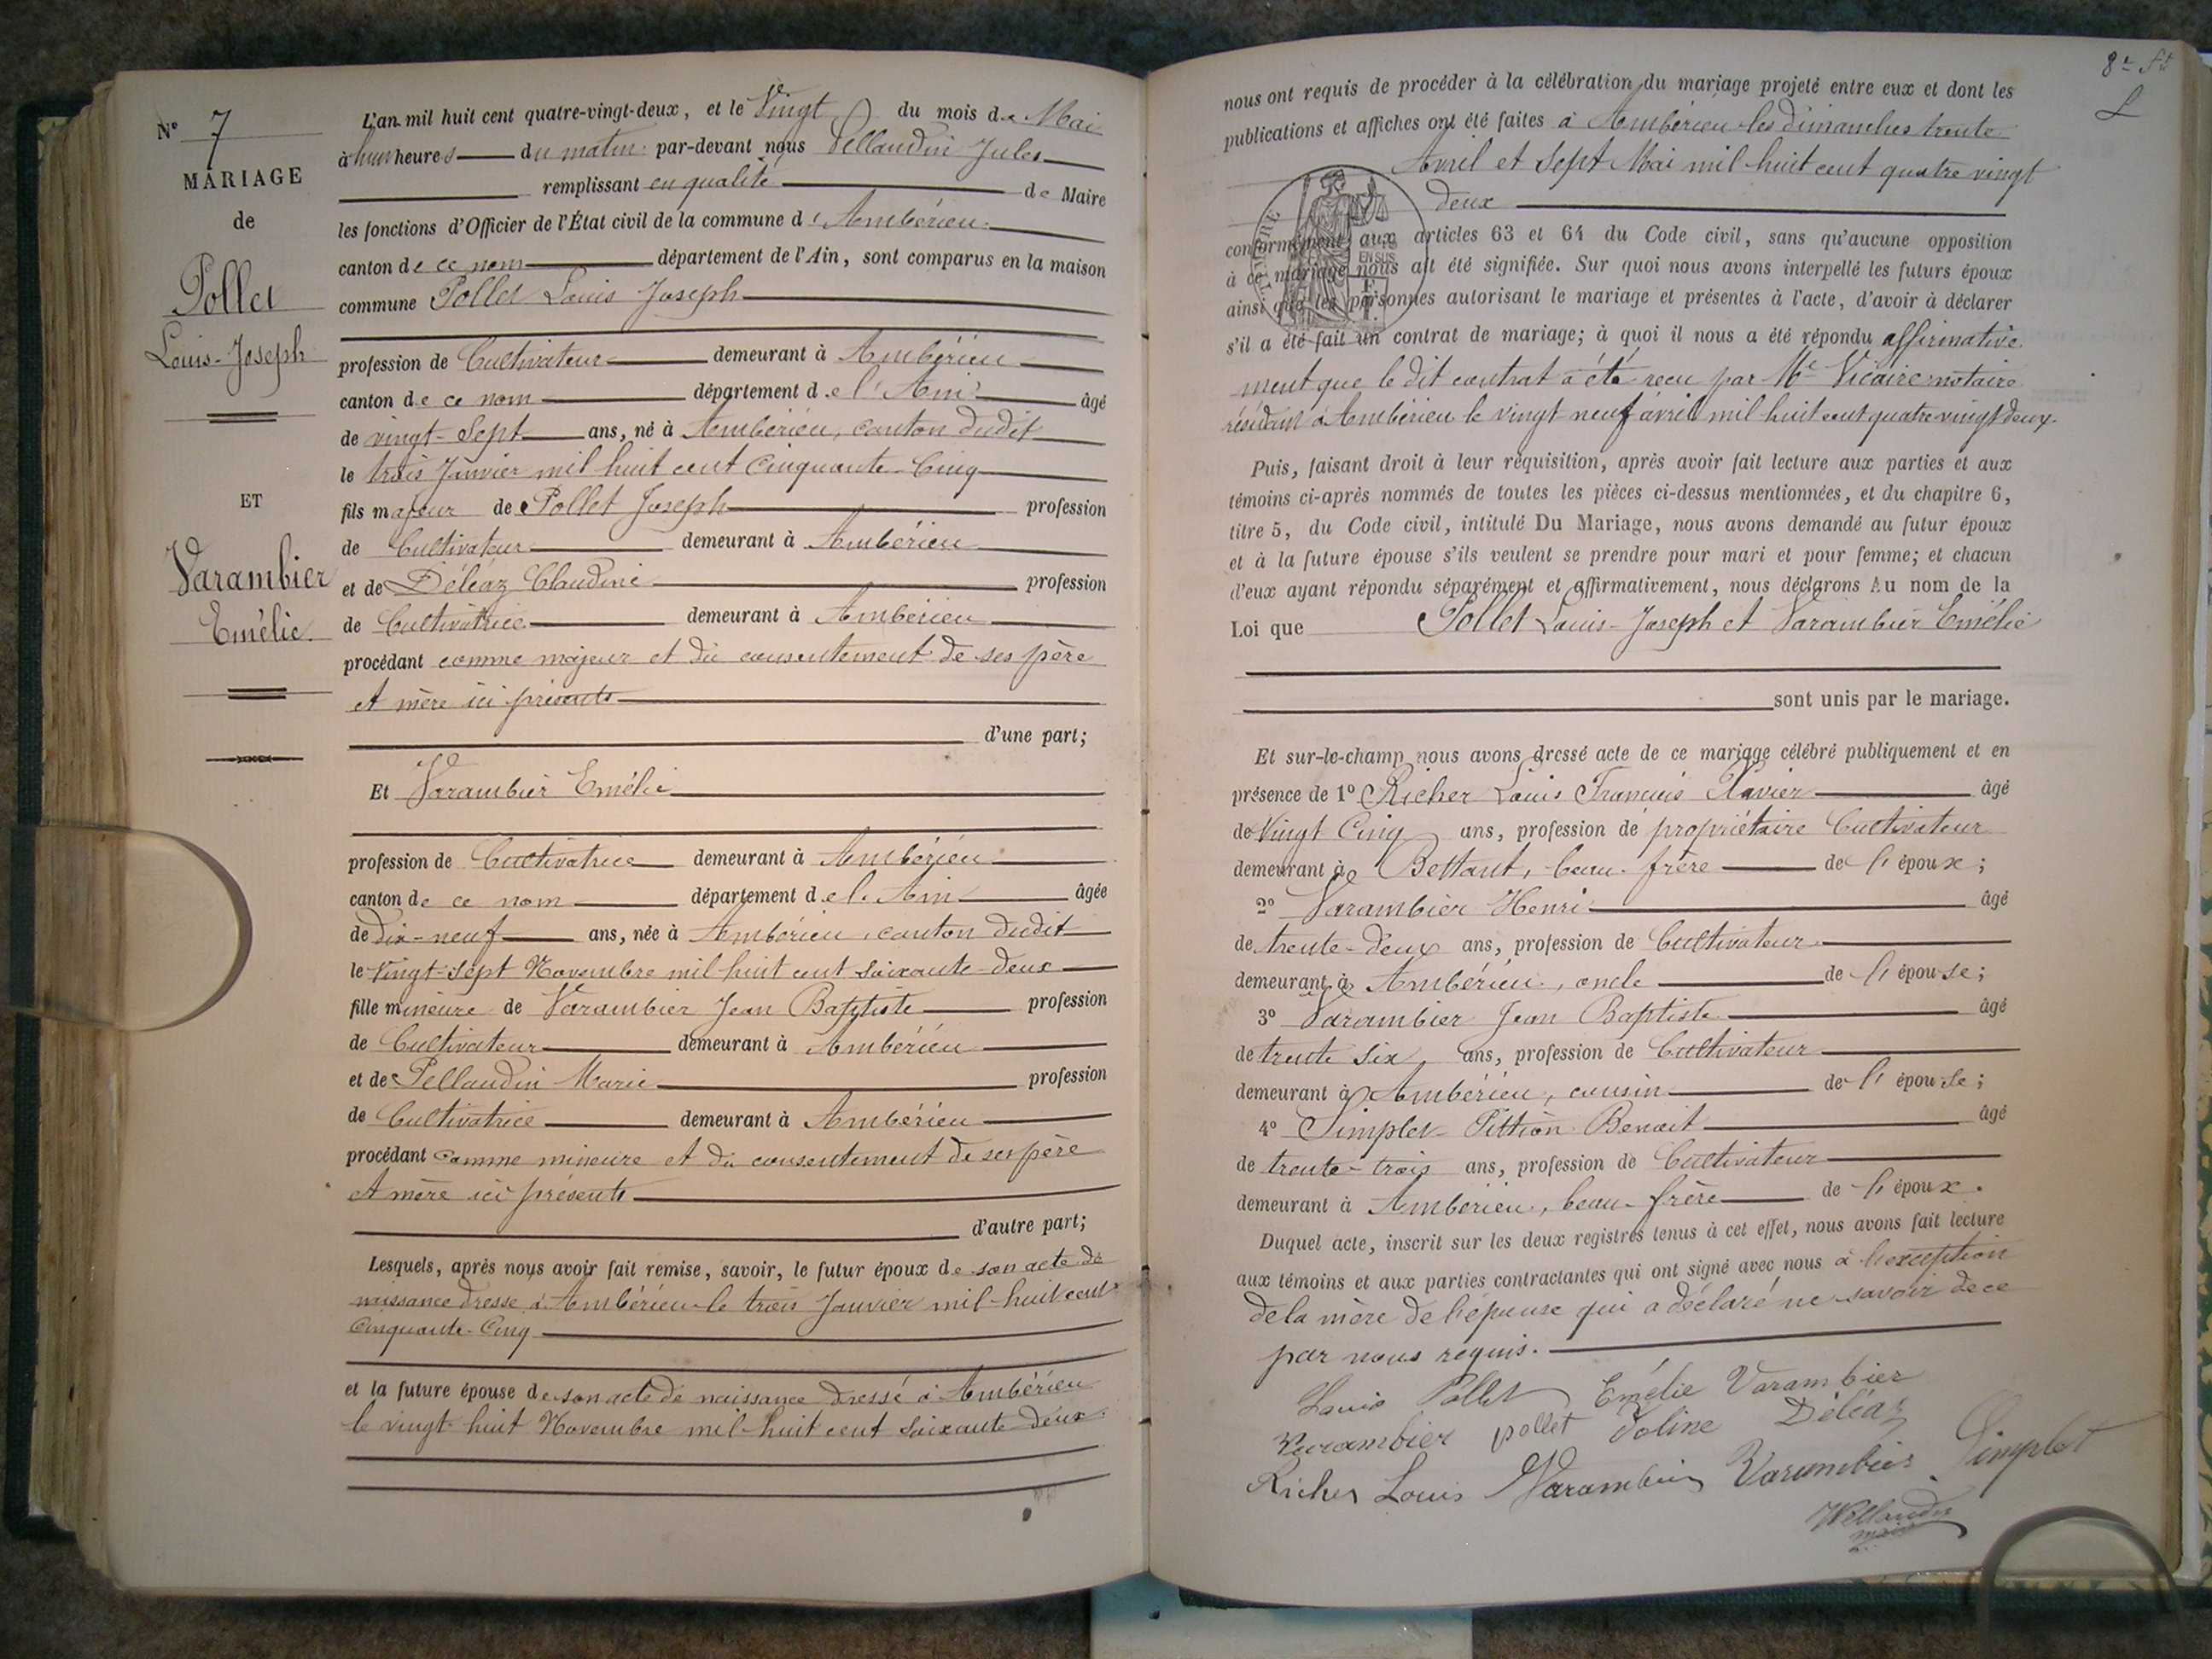 N° 7
MARIAGE
de
Pollet
Louis-Joseph
ET
Varambier
Emélie.
L'an mil huit cent quatre-vingt-deux, et le Vingt du mois de Mai
à huit heures du matin par-devant nous Pellaudin Jules
remplissant en qualité de Maire
les fonctions d'Officier de l'État civil de la commune d'Ambérieu
canton de ce nom département de l'Ain, sont comparus en la maison
commune Pollet Louis Joseph
profession de Cultivateur demeurant à Ambérieu
canton de ce nom département de l'Ain âgé
de vingt-Sept ans, né à Ambérieu, canton dudit
le trois Janvier mil huit cent Cinquante-Cinq
fils majeur de Pollet Joseph profession
de Cultivateur demeurant à Ambérieu
et de Déléaz Claudine profession
de Cultivatrice demeurant à Ambérieu
procédant comme majeur et du consentement de ses père
et mère ici présents
d'une part;
Et Varambier Emélie
profession de Cultivatrice demeurant à Ambérieu
canton de ce nom département de l'Ain âgée
de dix-neuf ans, née à Ambérieu, canton dudit
le Vingt-sept Novembre mil huit cent Soixante-deux
fille mineure de Varambier Jean Baptiste profession
de Cultivateur demeurant à Ambérieu
et de Pellaudin Marie profession
de Cultivatrice demeurant à Ambérieu
procédant comme mineure et du consentement de ses père
et mère ici présents
d'autre part;
Lesquels, après nous avoir fait remise, savoir, le futur époux de son acte de
naissance dressé à Ambérieu le trois Janvier mil-huit cent
Cinquante-Cinq
et la future épouse de son acte de naissance dressé à Ambérieu
le vingt huit Novembre mil-huit cent Soixante-deux
8e
nous ont requis de procéder à la célébration du mariage projeté entre eux et dont les
publications et affiches ont été faites à Ambérieu les dimanches trente
Avril et Sept Mai mil huit cent quatre vingt
deux
TIMBRE
conformément aux articles 63 et 64 du Code civil, sans qu'aucune opposition
à ce mariage nous ait été signifiée. Sur quoi nous avons interpellé les futurs époux
ainsi que les personnes autorisant le mariage et présentes à l'acte, d'avoir à déclarer
s'il a été fait un contrat de mariage; à quoi il nous a été répondu affirmative
ment que le dit contrat a été reçu par Me Vicaire notaire
résidant à Ambérieu le vingt neuf avril mil huit cent quatre vingt deux.
Puis, faisant droit à leur réquisition, après avoir fait lecture aux parties et aux
témoins ci-après nommés de toutes les pièces ci-dessus mentionnées, et du chapitre 6,
titre 5, du Code civil, intitulé Du Mariage, nous avons demandé au futur époux
et à la future épouse s'ils veulent se prendre pour mari et pour femme; et chacun
d'eux ayant répondu séparément et affirmativement, nous déclarons Au nom de la
Loi que Pollet Louis-Joseph et Varambier Emélie
sont unis par le mariage.
Et sur-le-champ nous avons dressé acte de ce mariage célébré publiquement et en
présence de 1° Richer Louis François Xavier âgé
de Vingt Cinq ans, profession de propriétaire Cultivateur
demeurant à Bettant, beau-frère de l'époux;
2° Varambier Henri âgé
de trente-deux ans, profession de Cultivateur
demeurant à Ambérieu, oncle de l'épouse;
3° Varambier Jean Baptiste âgé
de trente six ans, profession de Cultivateur
demeurant à Ambérieu, cousin de l'épouse;
4° Simplet Pittion Benoit âgé
de trente-trois ans, profession de Cultivateur
demeurant à Ambérieu, beau-frère de l'époux.
Duquel acte, inscrit sur les deux registres tenus à cet effet, nous avons fait lecture
aux témoins et aux parties contractantes qui ont signé avec nous à l'exception
de la mère de l'épouse qui a déclaré ne savoir de ce
par nous requis.
Louis Pollet Emélie Varambier
Varambier pollet Joline Déléaz
Richer Louis Varambier Varambier Simplet
Pellaudin
maire